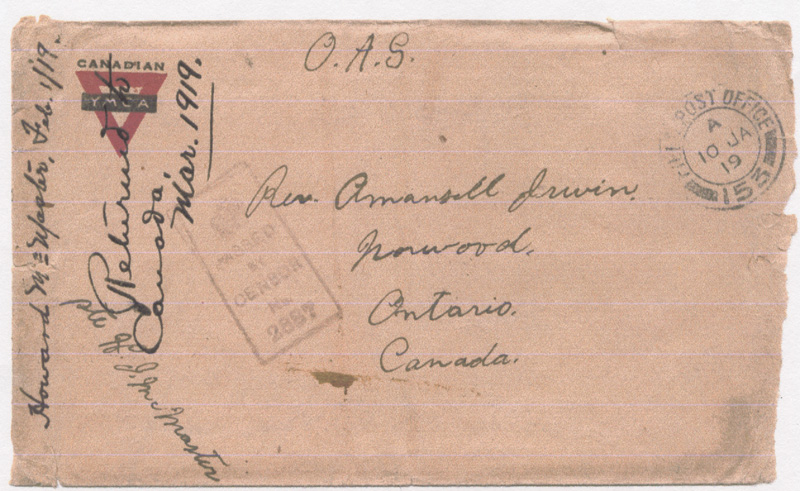 O.A.S.
CANADIAN
YMCA
Returned to
Canada,
Mar. 1919.
Howard Feb. 1/19.
Pte J. McMaster
FIELD POST OFFICE
A
10 JA
19
153
PASSED
BY
CENSOR
No.
2887
Rev. Amansell Irwin.
Norwood,
Ontario.
Canada.